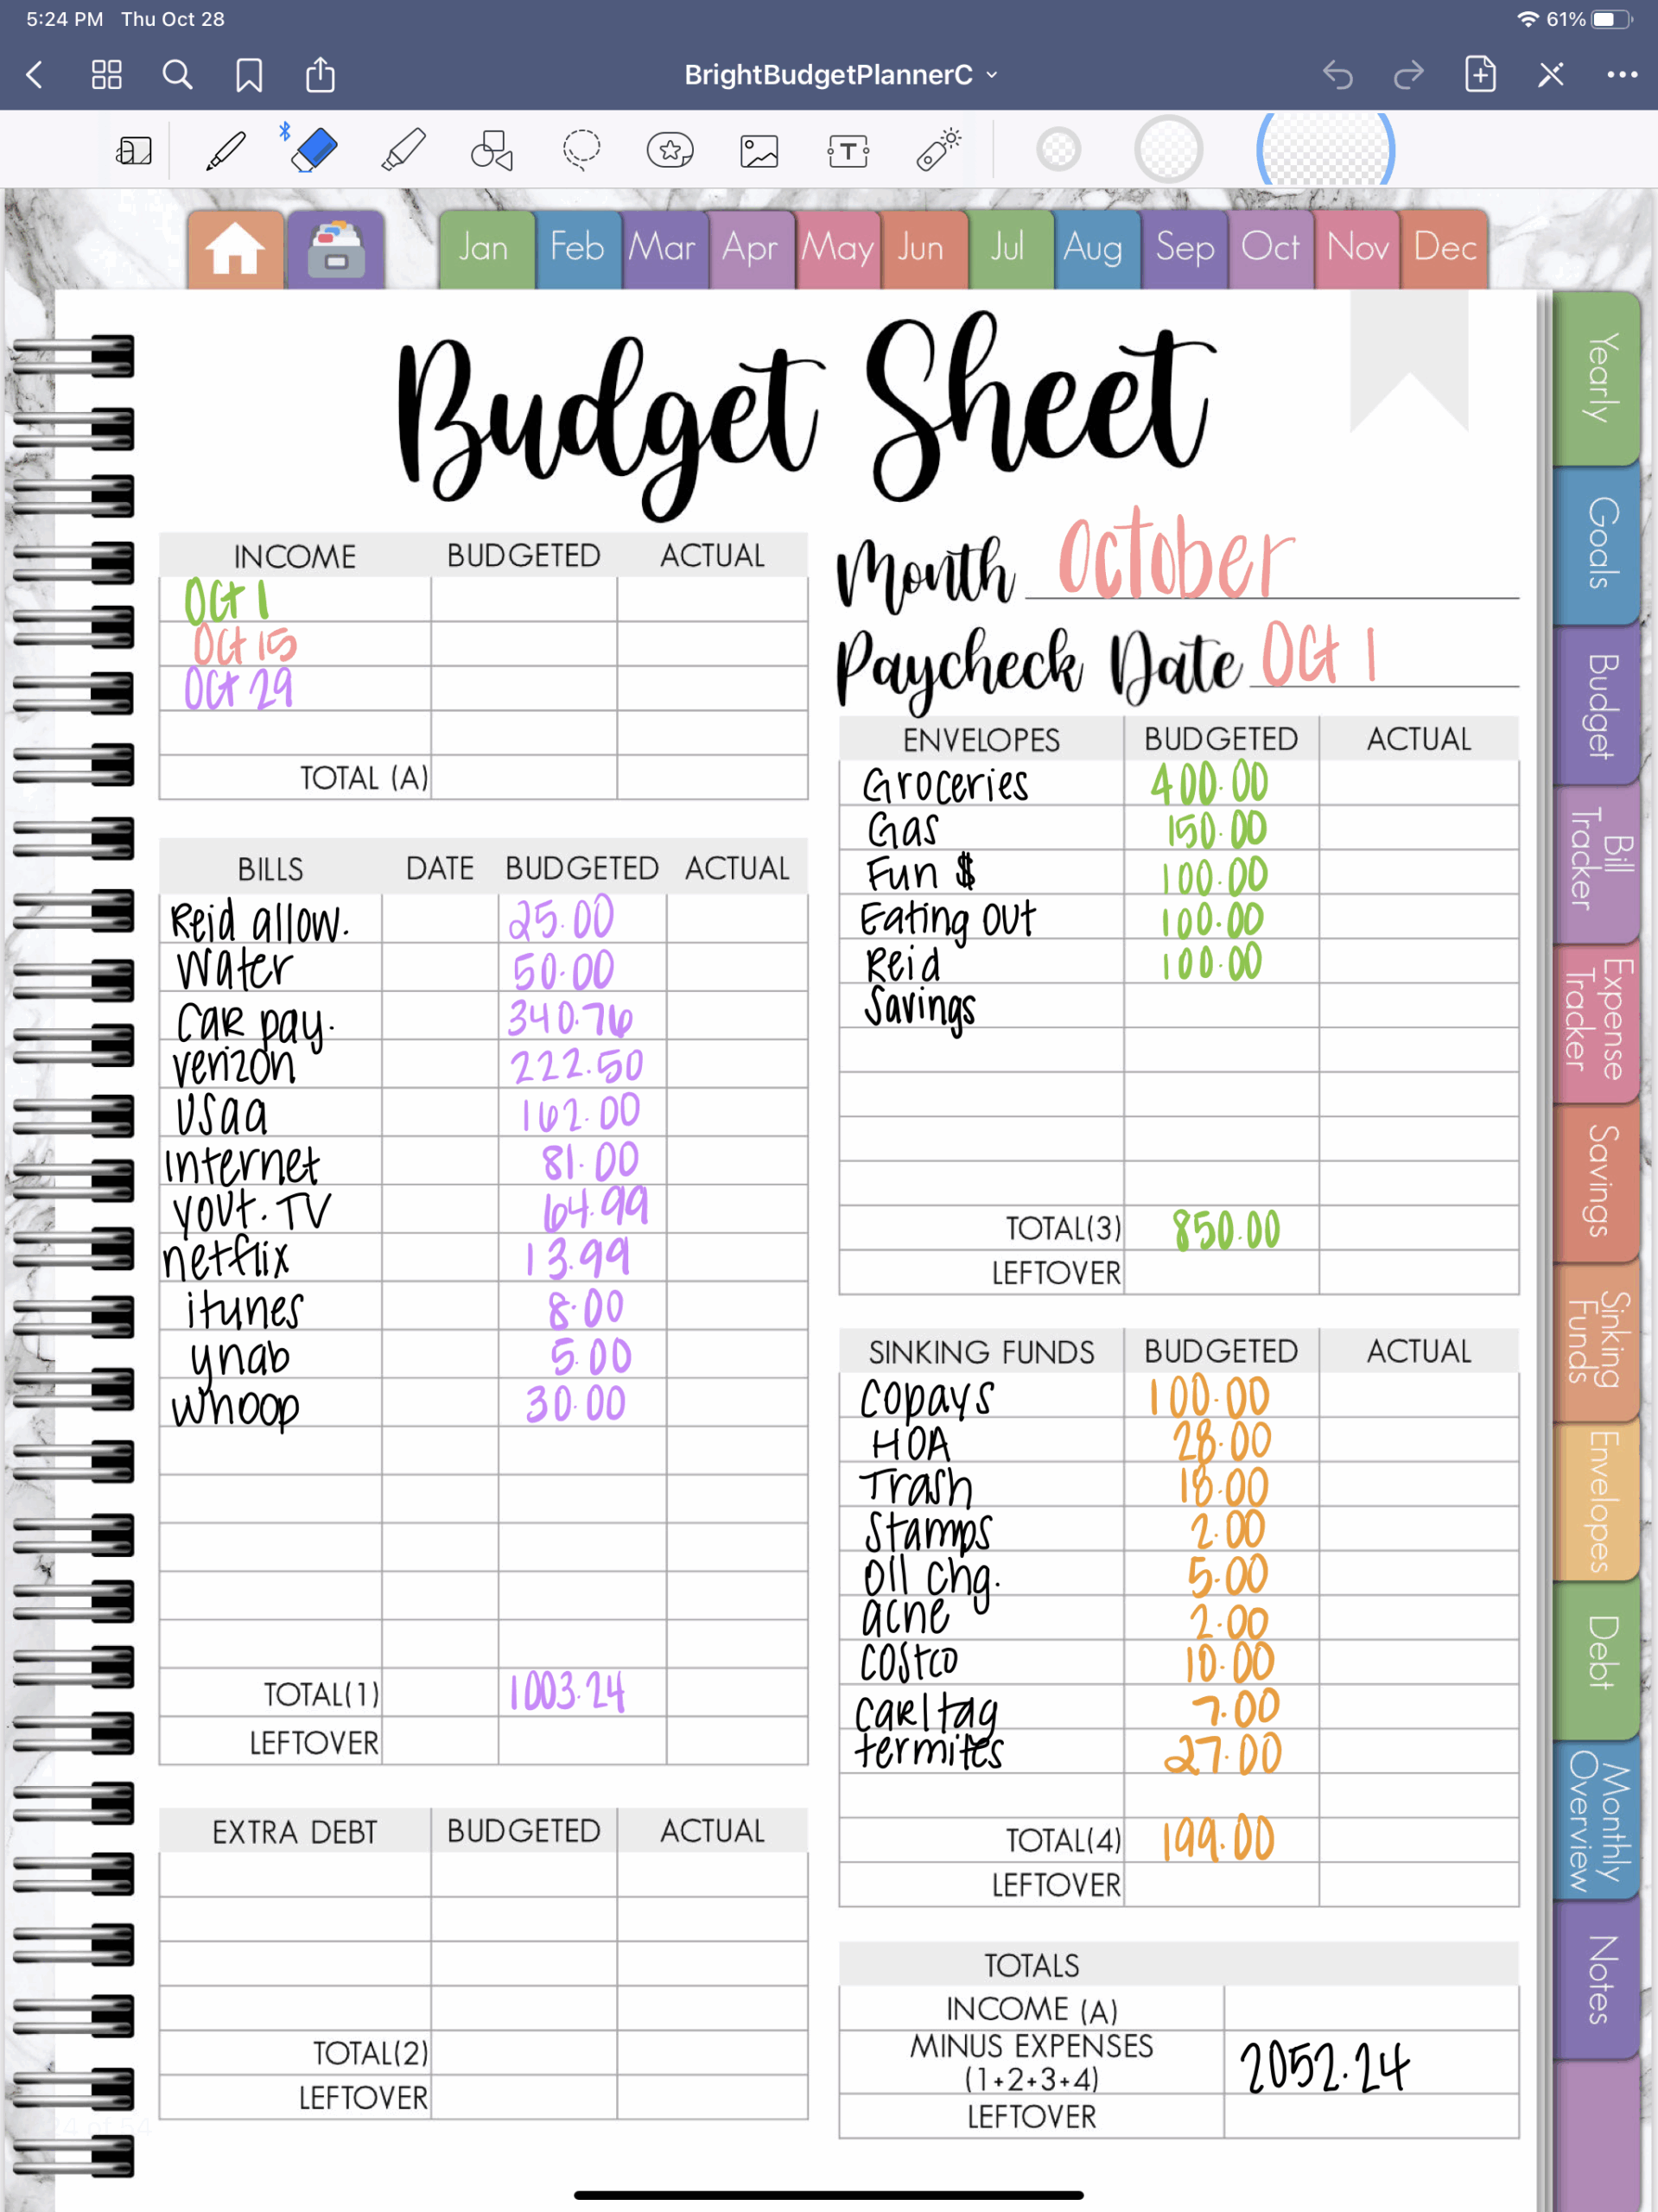 5:24 PM Thu Oct 28 61%
BrightBudgetPlannerC
Jan Feb Mar Apr May Jun Jul Aug Sep Oct Nov Dec
Budget Sheet
Month October
Paycheck Date Oct 1
INCOME BUDGETED ACTUAL
Oct 1
Oct 15
Oct 29
TOTAL (A)
BILLS DATE BUDGETED ACTUAL
Reid allow. 25.00
Water 50.00
Car pay. 340.76
verizon 222.50
USaa 162.00
internet 81.00
yout. TV 64.99
netflix 13.99
itunes 8.00
ynab 5.00
whoop 30.00
TOTAL(1) 1003.24
LEFTOVER
EXTRA DEBT BUDGETED ACTUAL
TOTAL(2)
LEFTOVER
ENVELOPES BUDGETED ACTUAL
Groceries 400.00
Gas 150.00
Fun $ 100.00
Eating out 100.00
Reid 100.00
Savings
TOTAL(3) 850.00
LEFTOVER
SINKING FUNDS BUDGETED ACTUAL
Copays 100.00
HOA 28.00
Trash 18.00
Stamps 2.00
Oil chg. 5.00
acne 2.00
costco 10.00
car|tag 7.00
termites 27.00
TOTAL(4) 199.00
LEFTOVER
TOTALS
INCOME (A)
MINUS EXPENSES
(1+2+3+4) 2052.24
LEFTOVER
Yearly
Goals
Budget
Bill
Tracker
Expense
Tracker
Savings
Sinking
Funds
Envelopes
Debt
Monthly
Overview
Notes